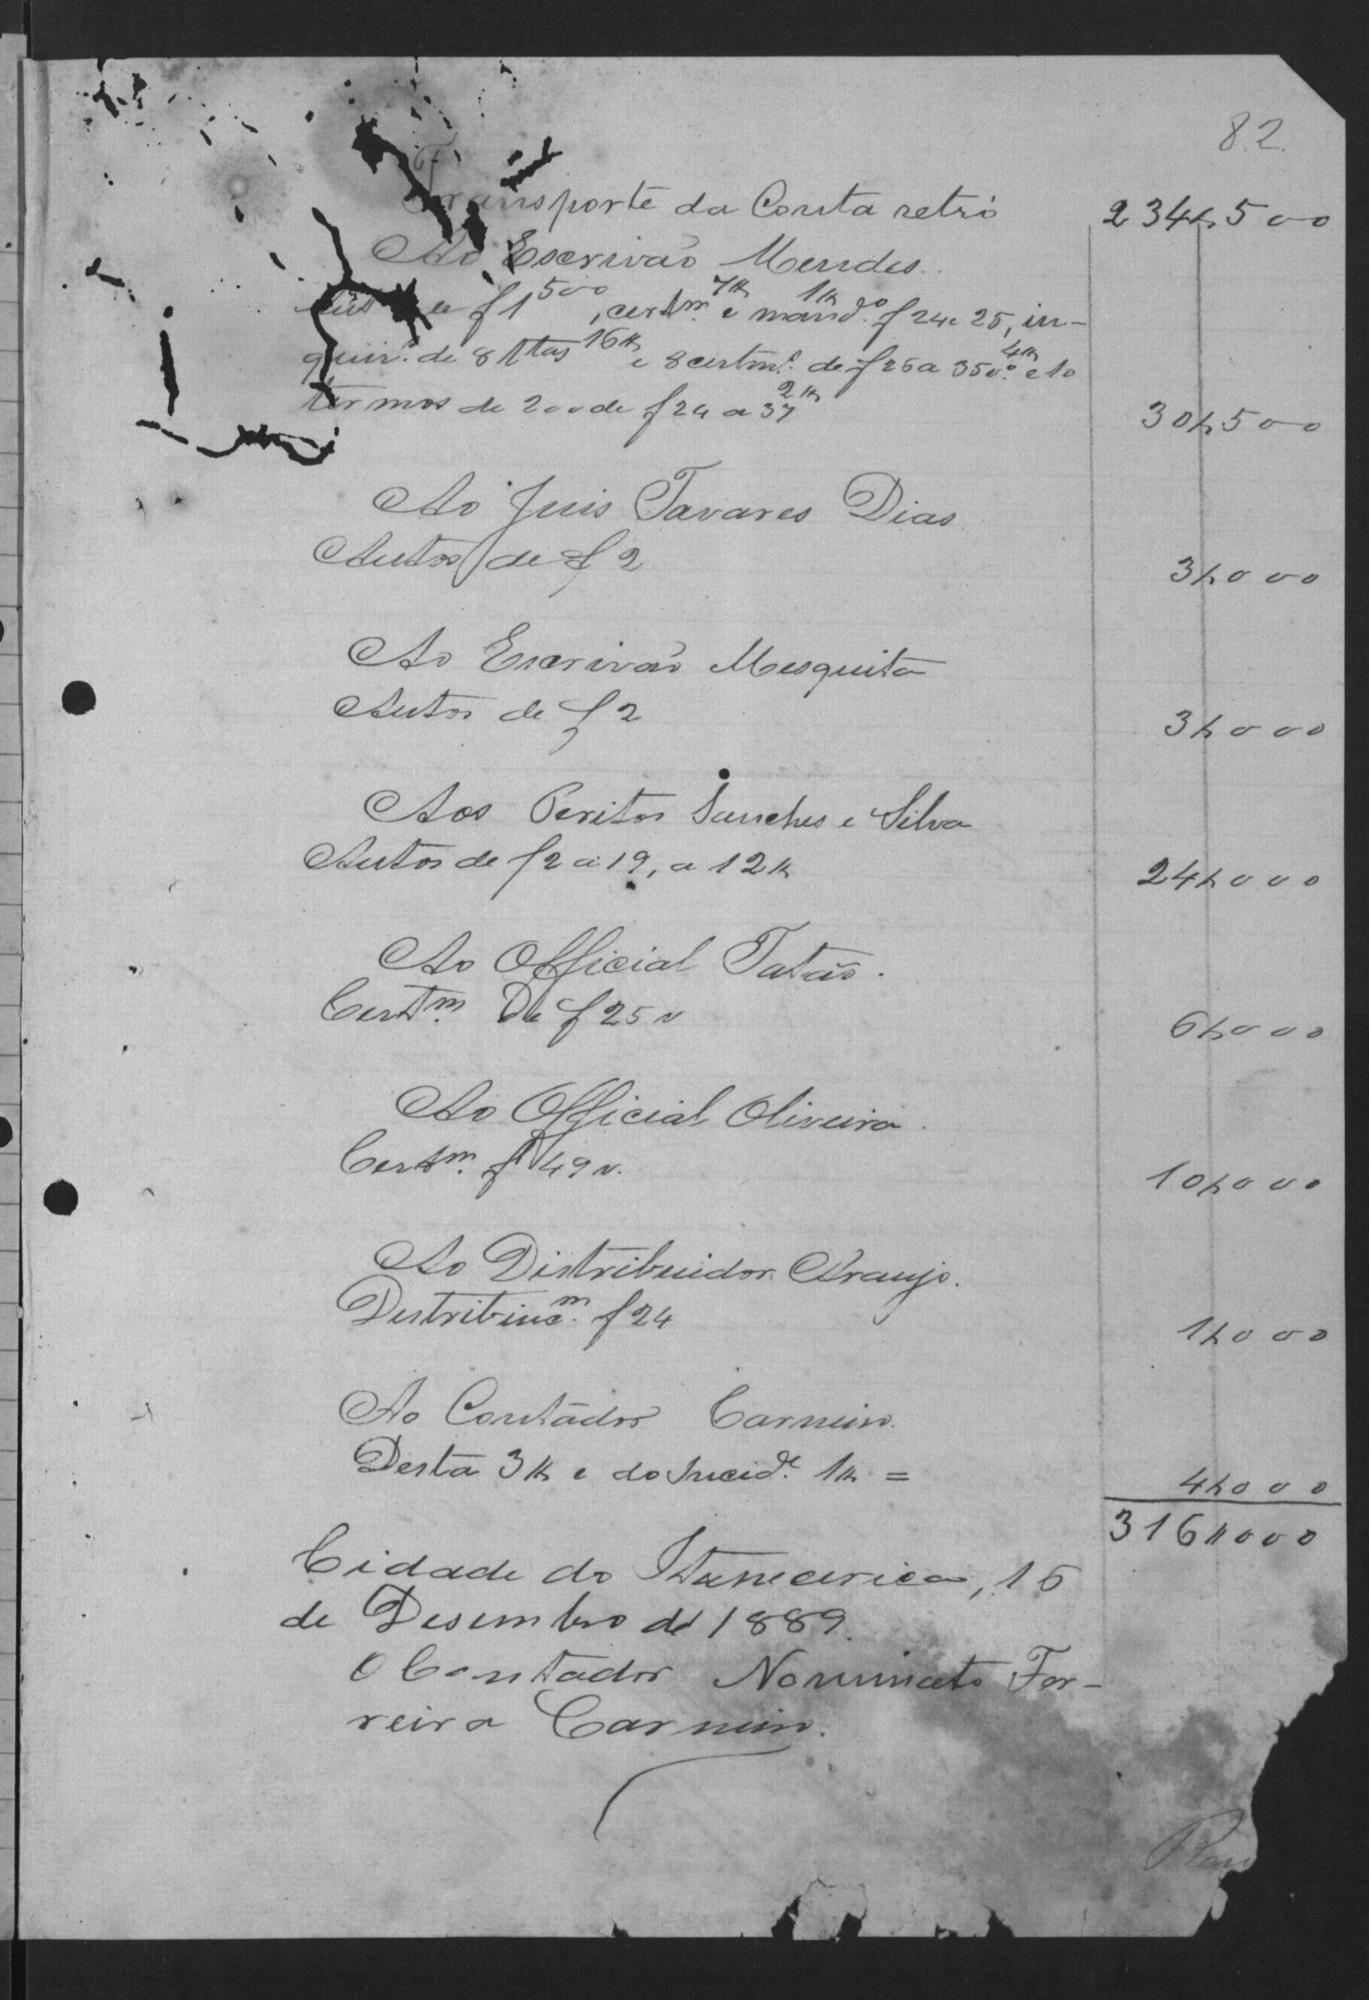 82.
Transporte da Conta retró 234$500
Ao Escrivão Mendes.
de f 1 500, certm. 7$ e mand.do 1$ f 24 e 25, in-
quir. de 8 ttas 16$ e 8 certm. de f 26 a 35 v.o 4$ e 10
termos de 200 de f 24 a 37 2$ 30$500
Ao Juis Tavares Dias
Autos de f 2 3$000
Ao Escrivão Mesquita
Autos de f 2 3$000
Aos Peritos Sanches e Silva
Autos de f 2 a 19, a 12$ 24$000
Ao Official Tatão.
Certm. De f 25 v 6$000
Ao Official Oliveira.
Certm. f 49 v. 10$000
Ao Distribuidor Araujo.
Destribuiç.m f 24 1$000
Ao Contador Carneiro.
Desta 3$ e do Incid.e 1$ = 4$000
316$000
Cidade do Itapecerica, 16
de Desembro de 1889.
O Contador Nominato Fer-
reira Carneiro.